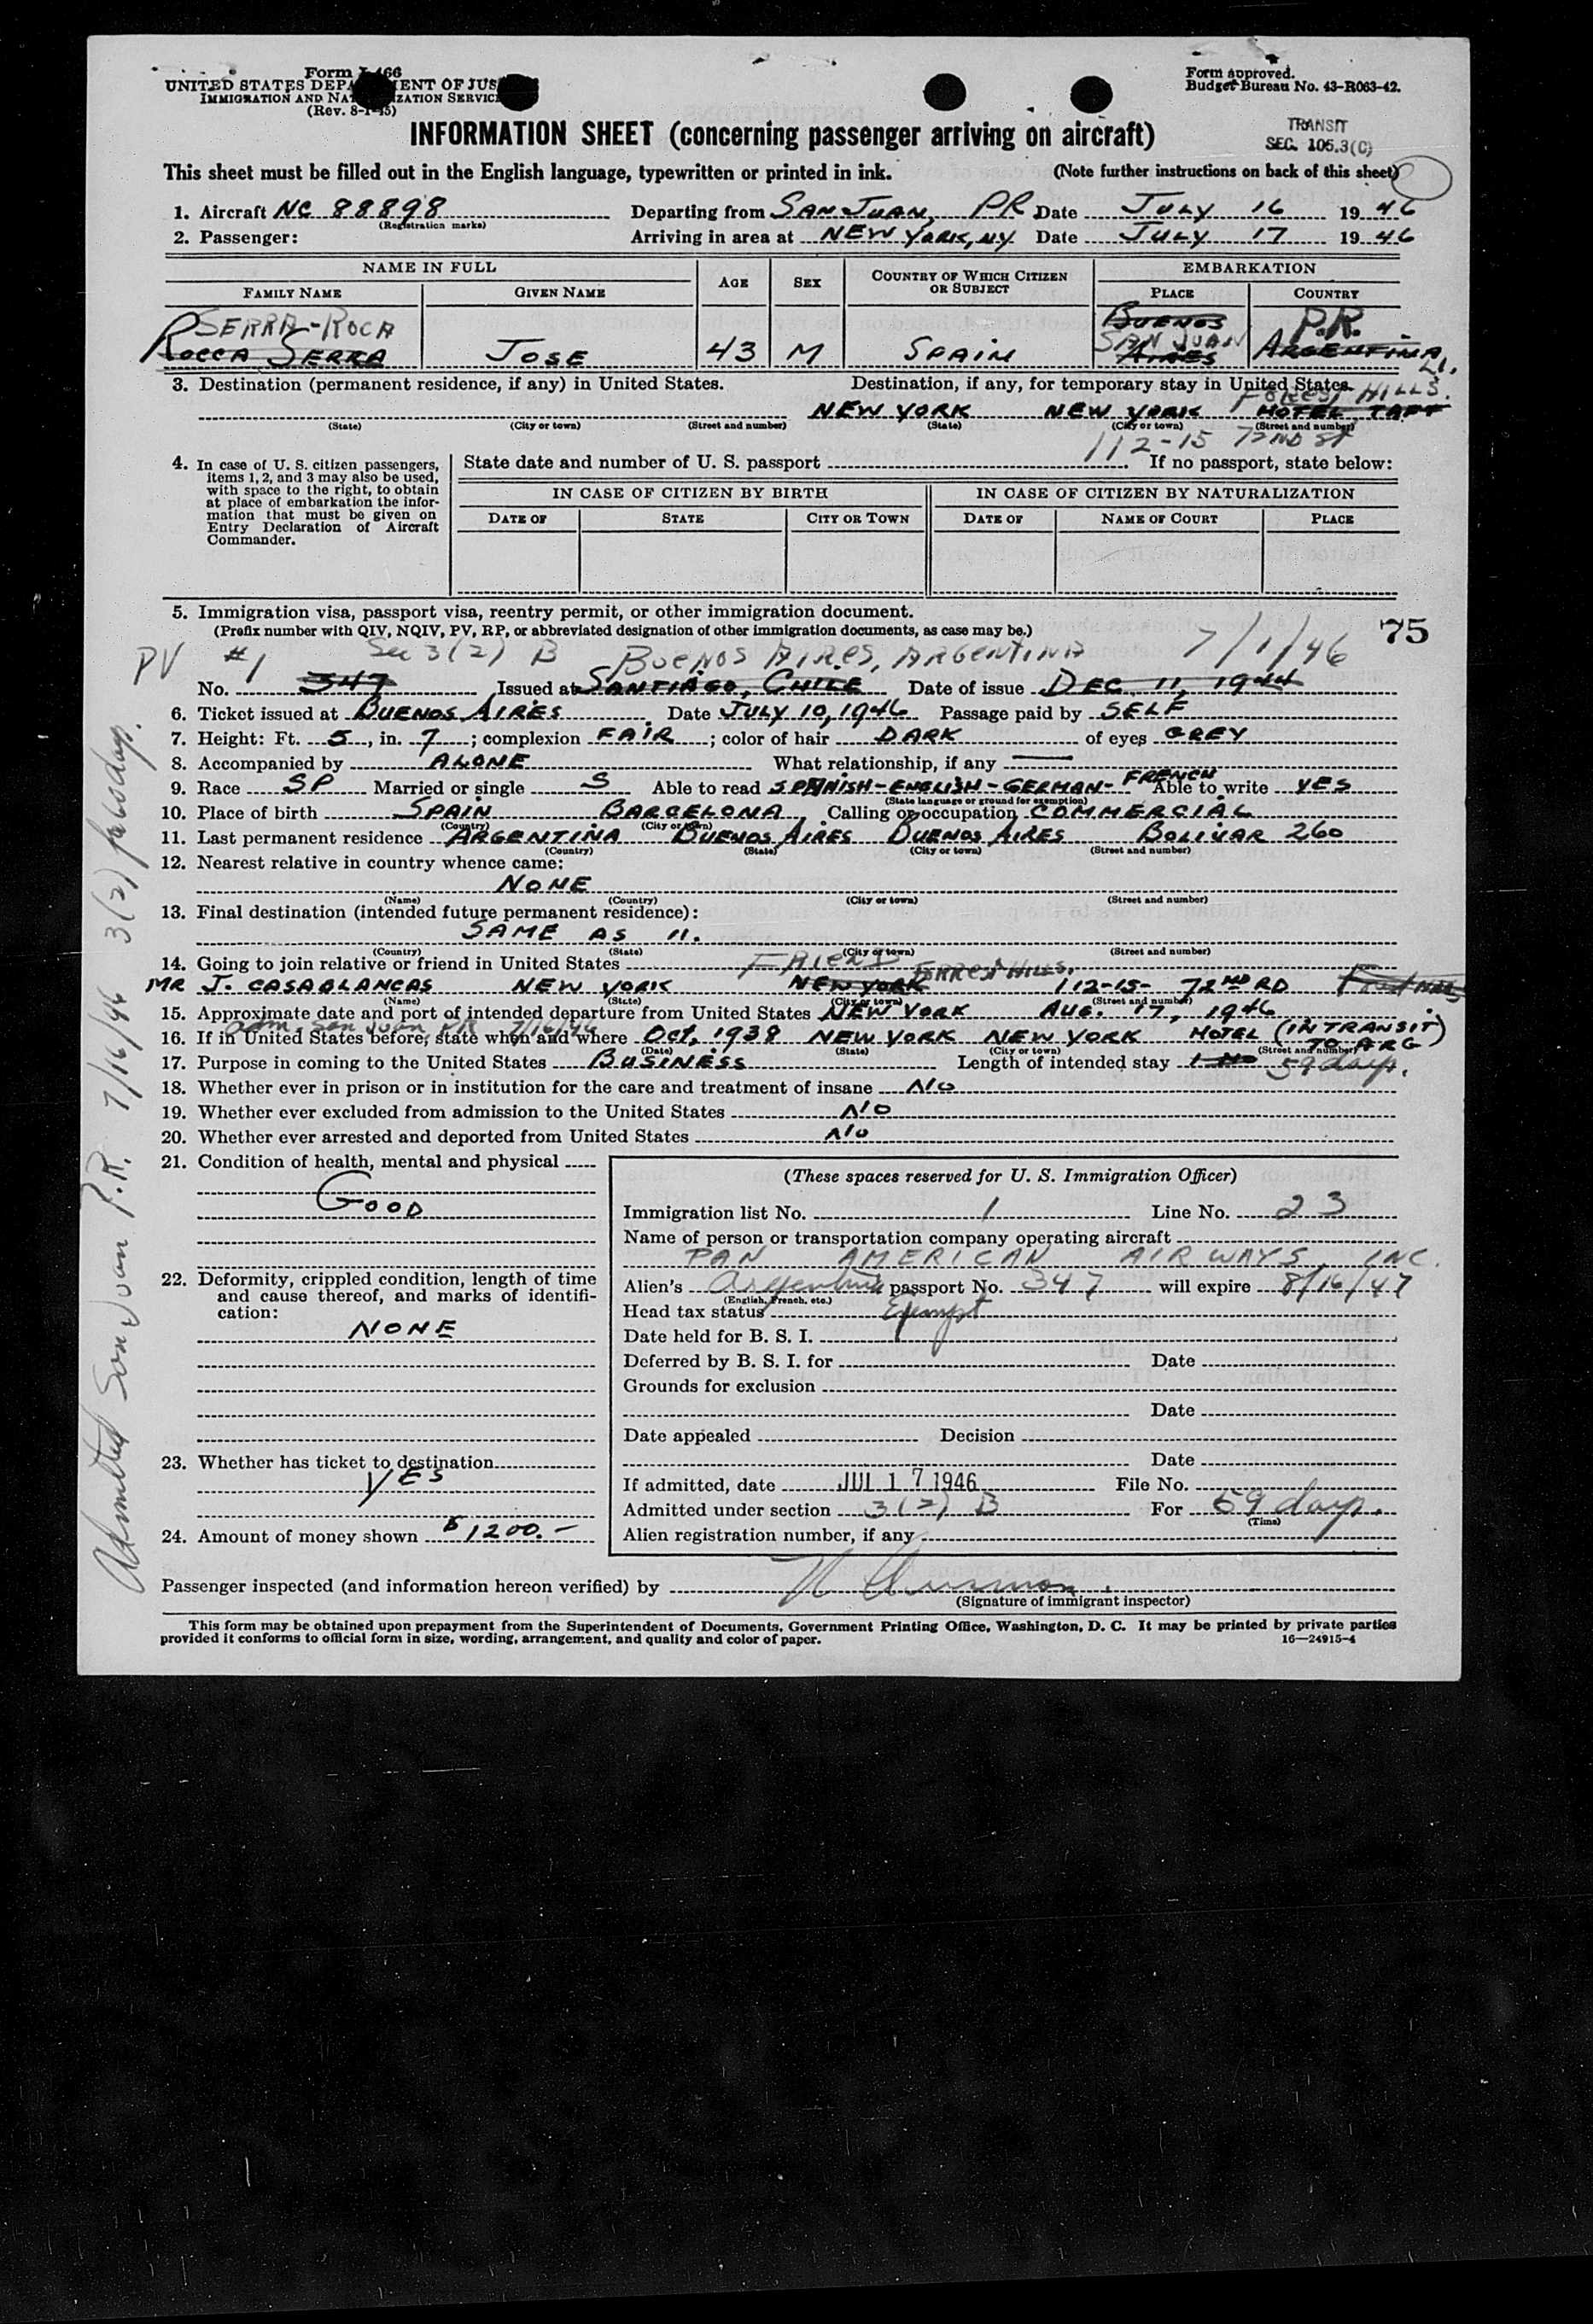 Form I-466
UNITED STATES DEPARTMENT OF JUSTICE
IMMIGRATION AND NATURALIZATION SERVICE
(Rev. 8-1-45)
Form approved.
Budget Bureau No. 43-R063-42.
INFORMATION SHEET (concerning passenger arriving on aircraft)
TRANSIT
SEC. 105.3(C)
This sheet must be filled out in the English language, typewritten or printed in ink. (Note further instructions on back of this sheet)
1. Aircraft NC 88898 Departing from SAN JUAN, PR Date JULY 16 1946
(Registration marks)
2. Passenger: Arriving in area at NEW YORK, NY Date JULY 17 1946
NAME IN FULL AGE SEX COUNTRY OF WHICH CITIZEN OR SUBJECT EMBARKATION
FAMILY NAME GIVEN NAME PLACE COUNTRY
SERRA-ROCA BUENOS P.R.
SAN JUAN
ROCCA SERRA JOSE 43 M SPAIN AIRES ARGENTINA
3. Destination (permanent residence, if any) in United States. Destination, if any, for temporary stay in United States.
FOREST HILLS. L.I.
NEW YORK NEW YORK HOTEL TAFT
(State) (City or town) (Street and number) (State) (City or town) (Street and number)
112-15 72ND ST
4. In case of U. S. citizen passengers, items 1, 2, and 3 may also be used, with space to the right, to obtain at place of embarkation the information that must be given on Entry Declaration of Aircraft Commander.
State date and number of U. S. passport If no passport, state below:
IN CASE OF CITIZEN BY BIRTH IN CASE OF CITIZEN BY NATURALIZATION
DATE OF STATE CITY OR TOWN DATE OF NAME OF COURT PLACE
5. Immigration visa, passport visa, reentry permit, or other immigration document.
(Prefix number with QIV, NQIV, PV, RP, or abbreviated designation of other immigration documents, as case may be.)
75
PV #1 Sec 3(2) B BUENOS AIRES, ARGENTINA 7/1/46
No. 347 Issued at SANTIAGO, CHILE Date of issue DEC. 11, 1944
6. Ticket issued at BUENOS AIRES Date JULY 10, 1946 Passage paid by SELF
7. Height: Ft. 5, in. 7; complexion FAIR; color of hair DARK of eyes GREY
8. Accompanied by ALONE What relationship, if any —
9. Race SP Married or single S Able to read SPANISH-ENGLISH-GERMAN-FRENCH Able to write YES
(State language or ground for exemption)
10. Place of birth SPAIN BARCELONA Calling or occupation COMMERCIAL
(Country) (City or town)
11. Last permanent residence ARGENTINA BUENOS AIRES BUENOS AIRES BOLIVAR 260
(Country) (State) (City or town) (Street and number)
12. Nearest relative in country whence came:
NONE
(Name) (Country) (City or town) (Street and number)
13. Final destination (intended future permanent residence):
SAME AS 11.
(Country) (State) (City or town) (Street and number)
14. Going to join relative or friend in United States FRIEND
FORREST HILLS.
MR J. CASABLANCAS NEW YORK NEW YORK 112-15- 72ND RD
(Name) (State) (City or town) (Street and number)
15. Approximate date and port of intended departure from United States NEW YORK AUG. 17, 1946
adm - San Juan PR 7/16/46
16. If in United States before, state when and where Oct, 1938 NEW YORK NEW YORK HOTEL (IN TRANSIT TO ARG)
(Date) (State) (City or town) (Street and number)
17. Purpose in coming to the United States BUSINESS Length of intended stay 1 MO 59 days.
18. Whether ever in prison or in institution for the care and treatment of insane NO
19. Whether ever excluded from admission to the United States NO
20. Whether ever arrested and deported from United States NO
21. Condition of health, mental and physical
GOOD
22. Deformity, crippled condition, length of time and cause thereof, and marks of identification:
NONE
23. Whether has ticket to destination
YES
24. Amount of money shown $1200.—
(These spaces reserved for U. S. Immigration Officer)
Immigration list No. 1 Line No. 23
Name of person or transportation company operating aircraft
PAN AMERICAN AIRWAYS, INC.
Alien's Argentine passport No. 347 will expire 8/16/47
(English, French, etc.)
Head tax status Exempt
Date held for B. S. I.
Deferred by B. S. I. for Date
Grounds for exclusion
Date
Date appealed Decision
Date
If admitted, date JUL 17 1946 File No.
Admitted under section 3(2) B For 59 days.
(Time)
Alien registration number, if any
Passenger inspected (and information hereon verified) by
(Signature of immigrant inspector)
This form may be obtained upon prepayment from the Superintendent of Documents, Government Printing Office, Washington, D. C. It may be printed by private parties
provided it conforms to official form in size, wording, arrangement, and quality and color of paper. 16—24915-4
Admitted San Juan P.R. 7/16/46 3(2)